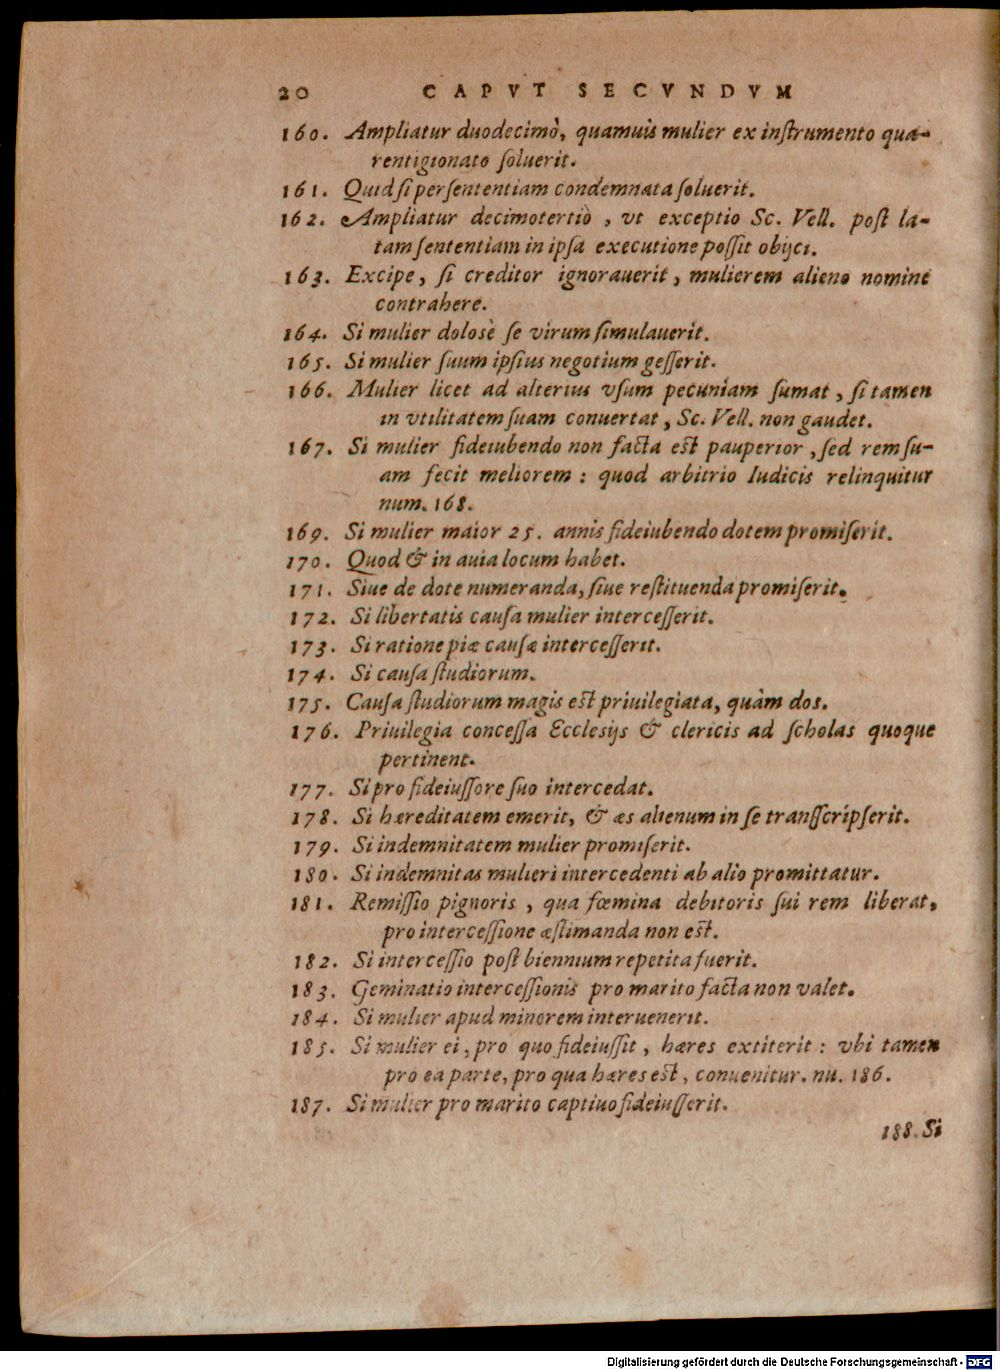 20 CAPVT SECVNDVM
160. Ampliatur duodecimò, quamuis mulier ex inſtrumento qua-
rentigionato ſoluerit.
161. Quid ſi per ſententiam condemnata ſoluerit.
162. Ampliatur decimotertiò, vt exceptio Sc. Vell. poſt la-
tam ſententiam in ipſa executione poſſit obijci.
163. Excipe, ſi creditor ignorauerit, mulierem alieno nomine
contrahere.
164. Si mulier dolosè ſe virum ſimulauerit.
165. Si mulier ſuum ipſius negotium geſſerit.
166. Mulier licet ad alterius vſum pecuniam ſumat, ſi tamen
in vtilitatem ſuam conuertat, Sc. Vell. non gaudet.
167. Si mulier fideiubendo non facta est pauperior, ſed rem ſu-
am fecit meliorem: quod arbitrio Iudicis relinquitur
num. 168.
169. Si mulier maior 25. annis fideiubendo dotem promiſerit.
170. Quod & in auia locum habet.
171. Siue de dote numeranda, ſiue reſtituenda promiſerit.
172. Si libertatis cauſa mulier interceſſerit.
173. Si ratione piæ cauſæ interceſſerit.
174. Si cauſa ſtudiorum.
175. Cauſa ſtudiorum magis est priuilegiata, quàm dos.
176. Priuilegia conceſſa Eccleſijs & clericis ad ſcholas quoque
pertinent.
177. Si pro fideiuſſore ſuo intercedat.
178. Si hæreditatem emerit, & æs alienum in ſe tranſſcripſerit.
179. Si indemnitatem mulier promiſerit.
180. Si indemnitas mulieri intercedenti ab alio promittatur.
181. Remiſſio pignoris, qua fœmina debitoris ſui rem liberat,
pro interceſſione æſtimanda non est.
182. Si interceſſio poſt biennium repetita fuerit.
183. Geminatio interceſſionis pro marito facta non valet.
184. Si mulier apud minorem interuenerit.
185. Si mulier ei, pro quo fideiuſſit, hæres extiterit: vbi tamen
pro ea parte, pro qua hæres est, conuenitur. nu. 186.
187. Si mulier pro marito captiuo fideiuſſerit.
188. Si
Digitalisierung gefördert durch die Deutsche Forschungsgemeinschaft - DFG